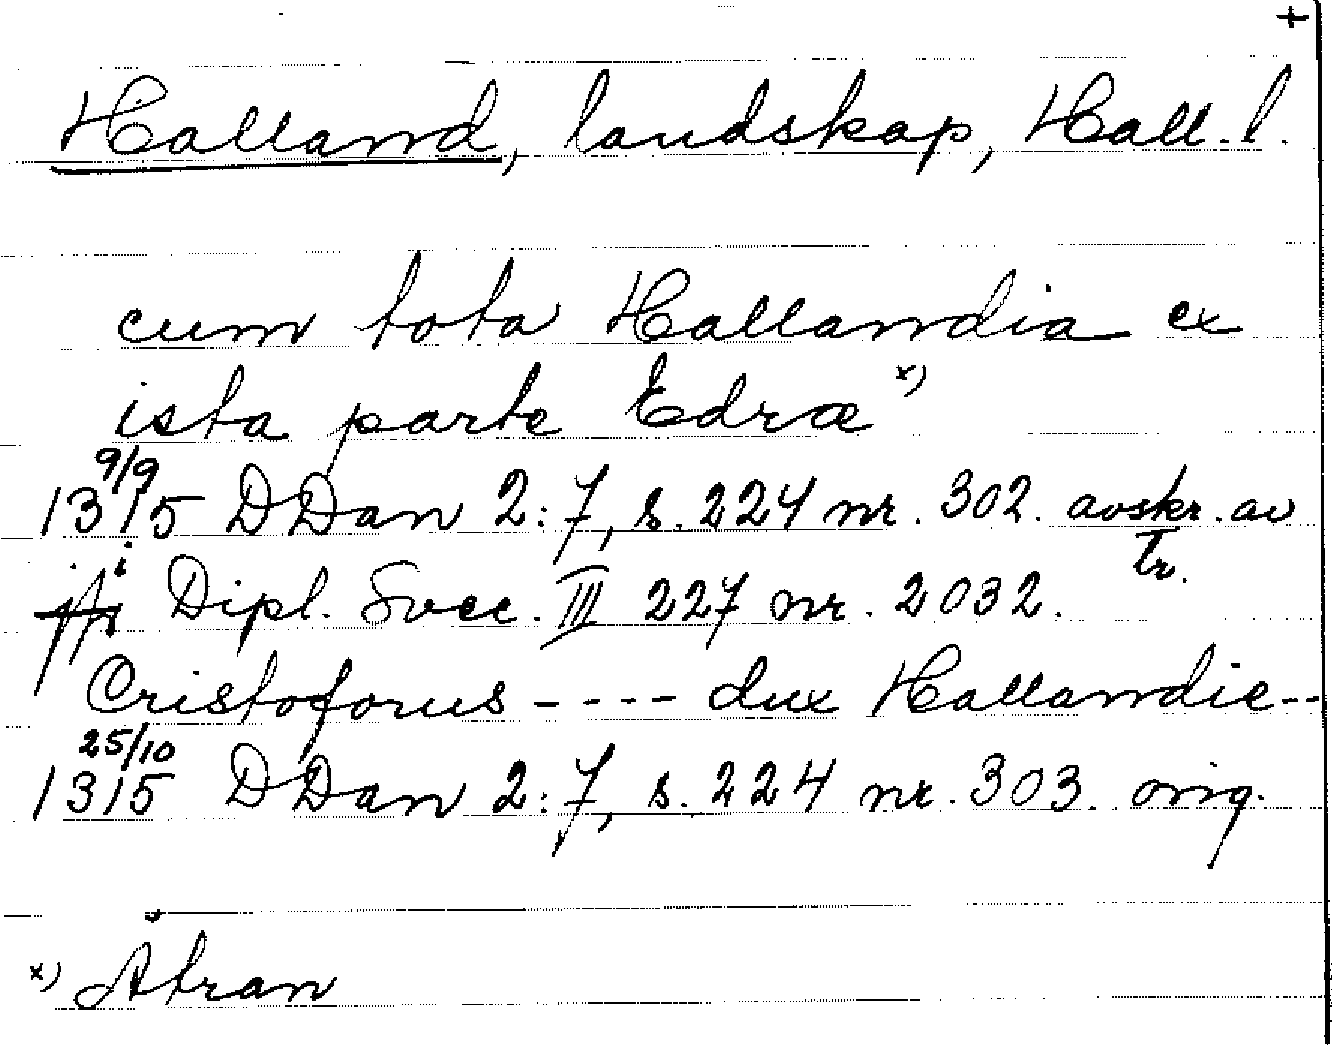 +
Halland, landskap, Hall. l.
cum tota Hallandia ex
ista parte Edræ x)
1315 9/9 DDan 2:7, s. 224 nr. 302. avskr. av tr.
i Dipl. Svec. III 227 nr. 2032.
Cristoforus ---- dux Hallandie --
1315 25/10 DDan 2:7, s. 224 nr. 303. orig.
x) Ätran